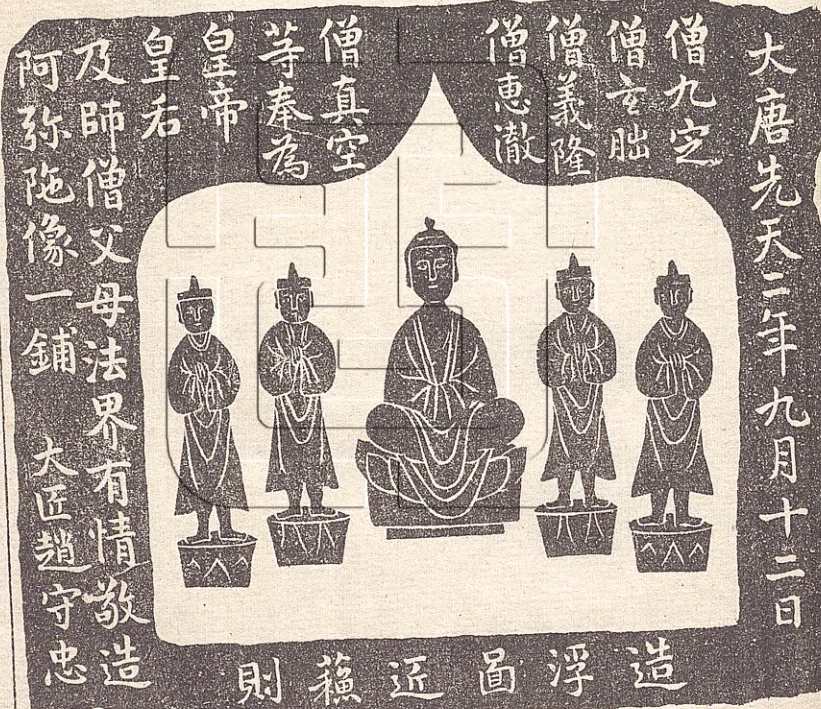 大唐先天二年九月十二日
僧九定
僧玄䏏
僧義隆
僧惠澈
僧真空
等奉為
皇帝
皇后
及師僧父母法界有情敬造
阿弥陁像一鋪 大匠趙守忠
造浮啚近蘓則